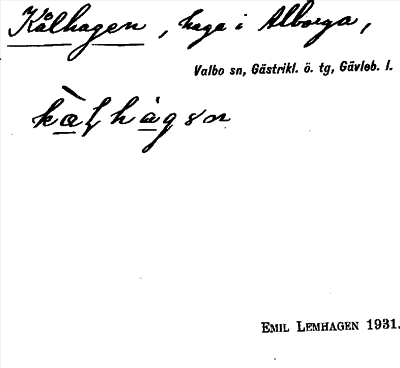 Kålhagen, hage i Alborga,
Valbo sn, Gästrikl. ö. tg, Gävleb. l.
EMIL LEMHAGEN 1931.